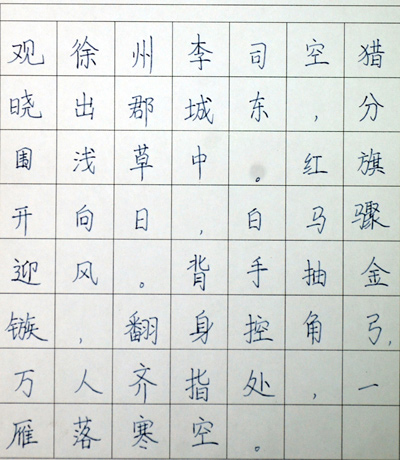 观徐州李司空猎
晓出郡城东，分
围浅草中。红旗
开向日，白马骤
迎风。背手抽金
镞，翻身控角弓，
万人齐指处，一
雁落寒空。